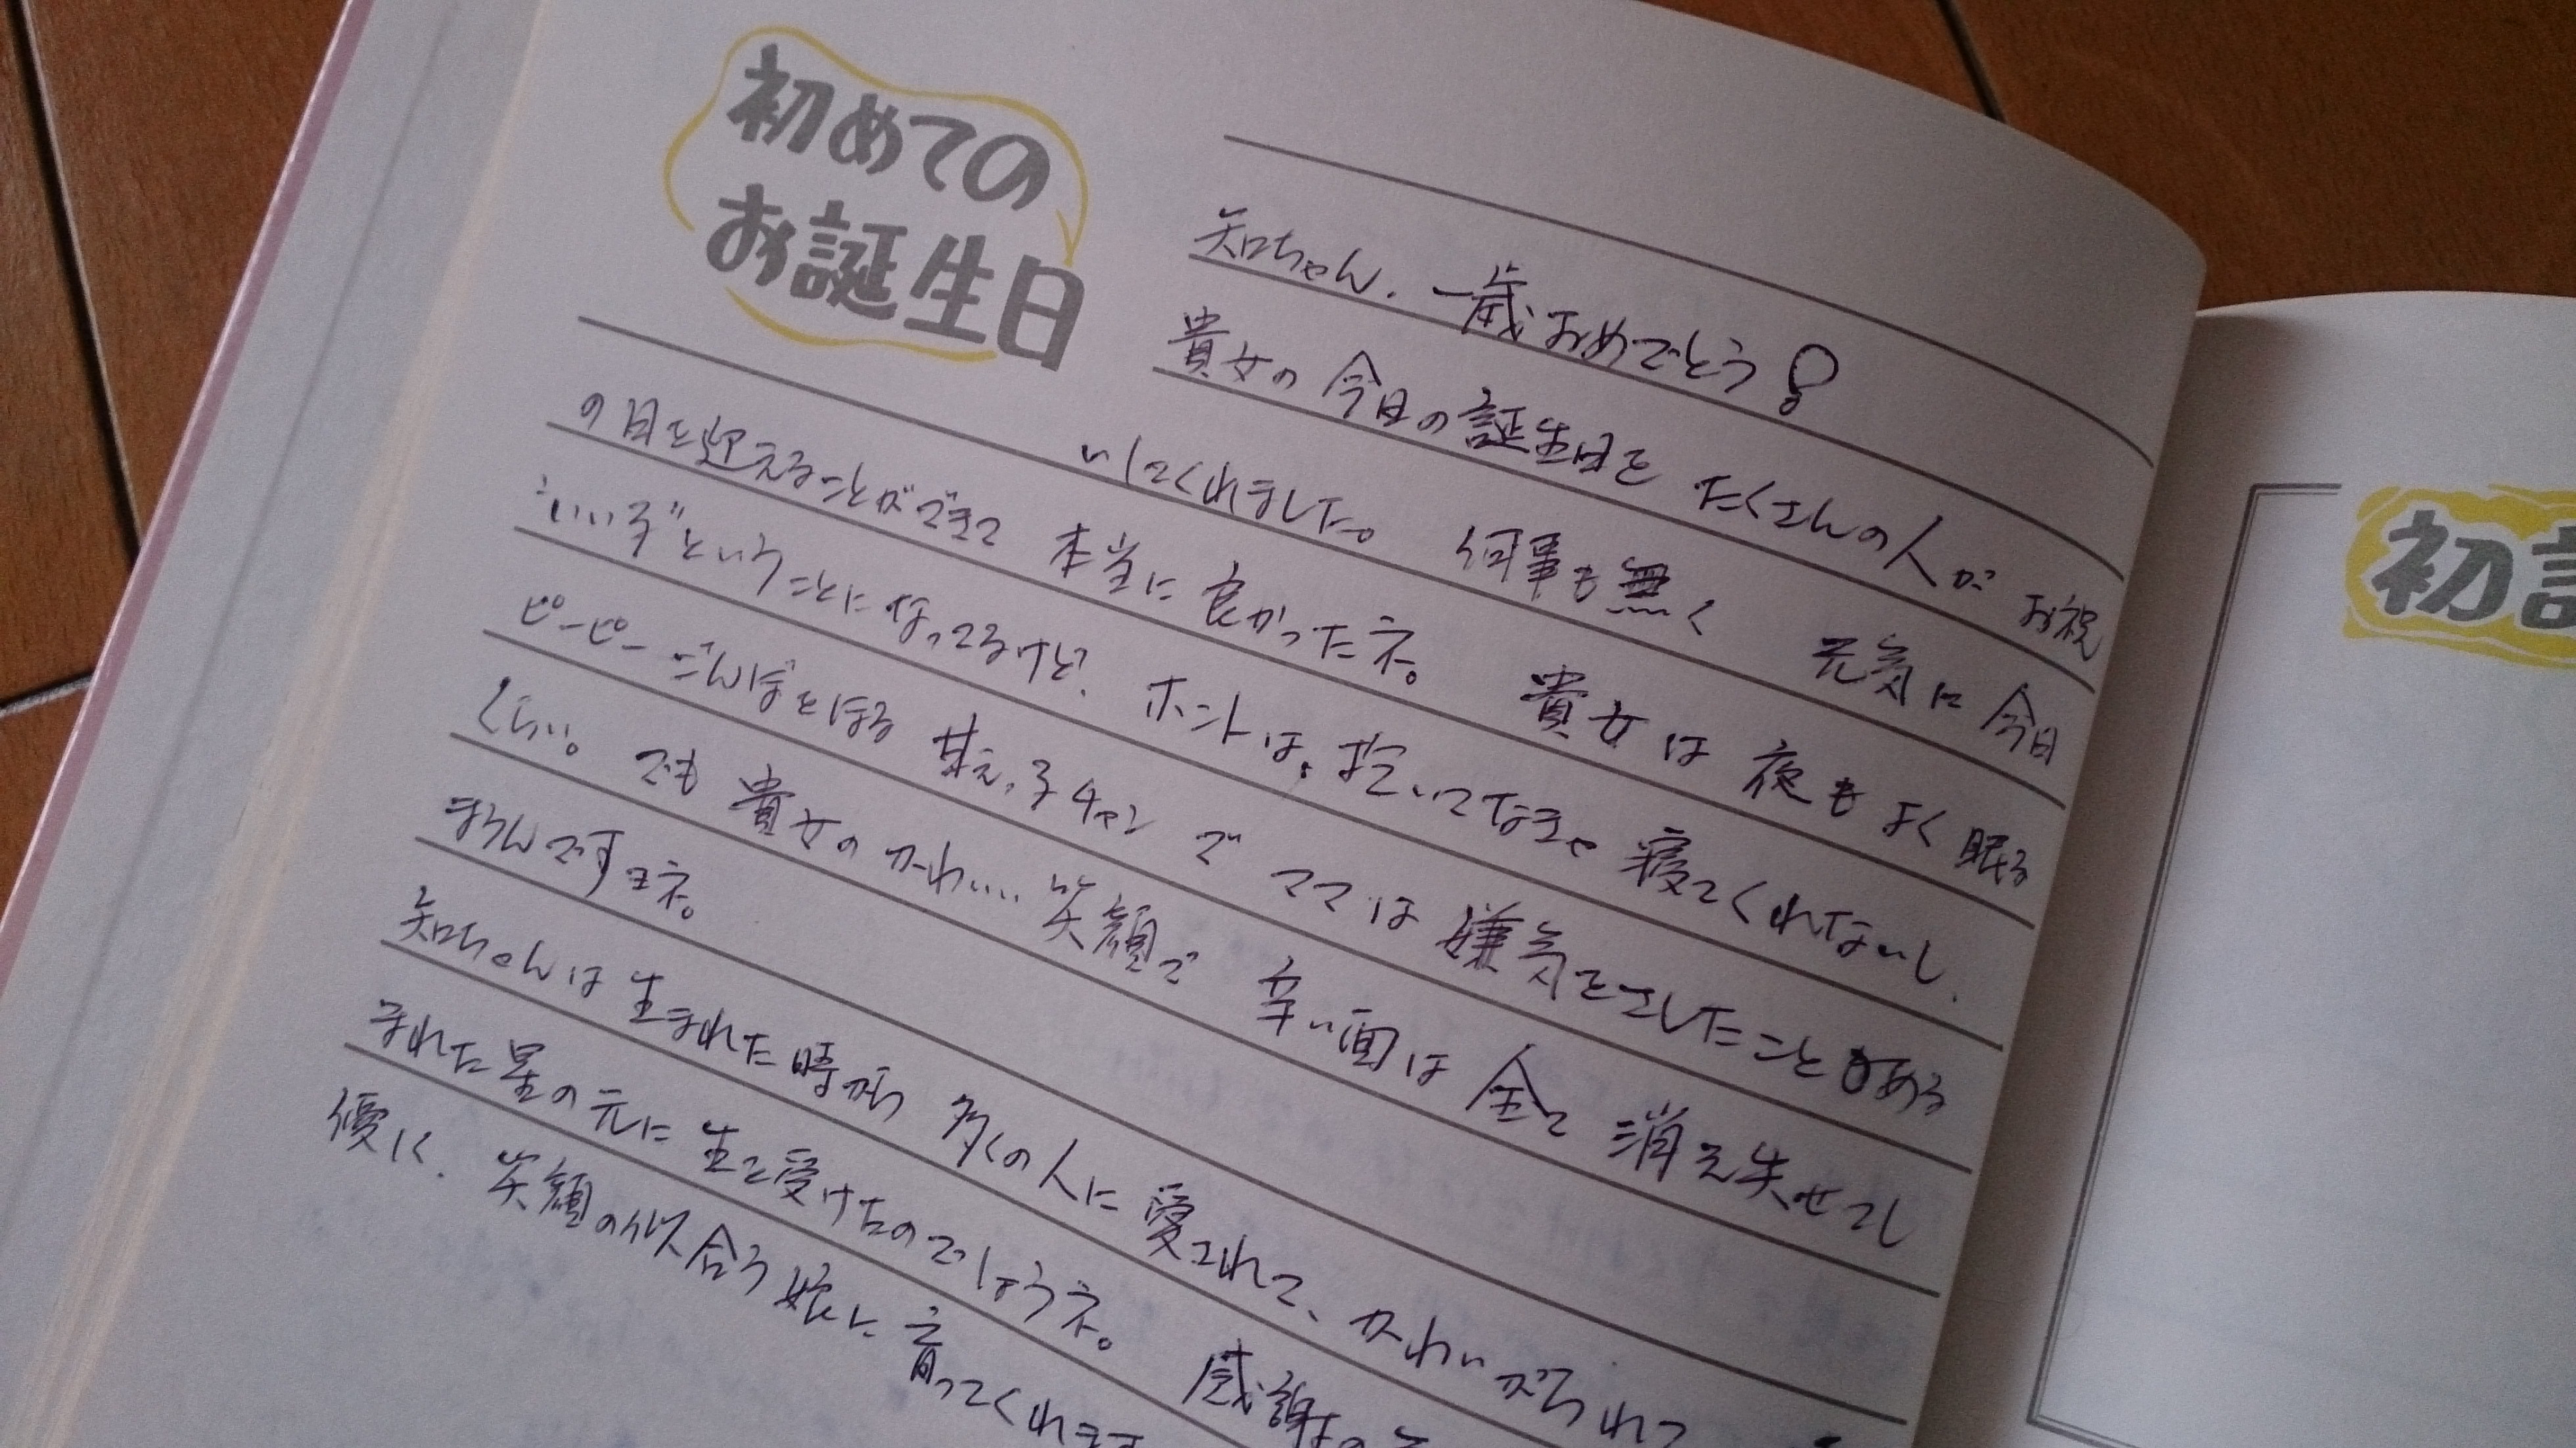 初めての
お誕生日
知ちゃん、一歳おめでとう!
貴女の今日の誕生日を たくさんの人が お祝
いしてくれました。 何事も無く 元気に 今日
の日を迎えることができて 本当に良かったネ。 貴女は 夜もよく眠る
"いい子"ということになってるけど、ホントは、抱いてなきゃ 寝てくれないし、
ピーピー ごんぼをほる 甘えっ子チャンで ママは 嫌気をさしたこともある
くらい。 でも 貴女の かわいい 笑顔で 辛い面は 全て 消え失せてし
まうんですョネ。
知ちゃんは 生まれた時から 多くの人に 愛されて、かわいがられて
まれた星の元に 生を受けたのでしょうネ。 感謝の
優しく、笑顔の似合う 娘に 育ってくれます
初